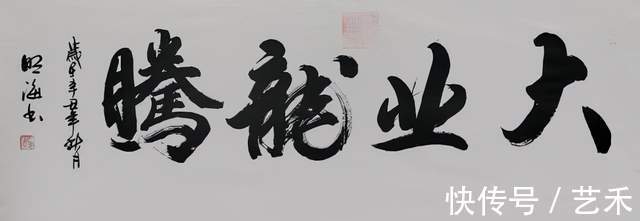 大业龍腾
歲在辛丑年秋月
明海书
快传号 / 艺禾